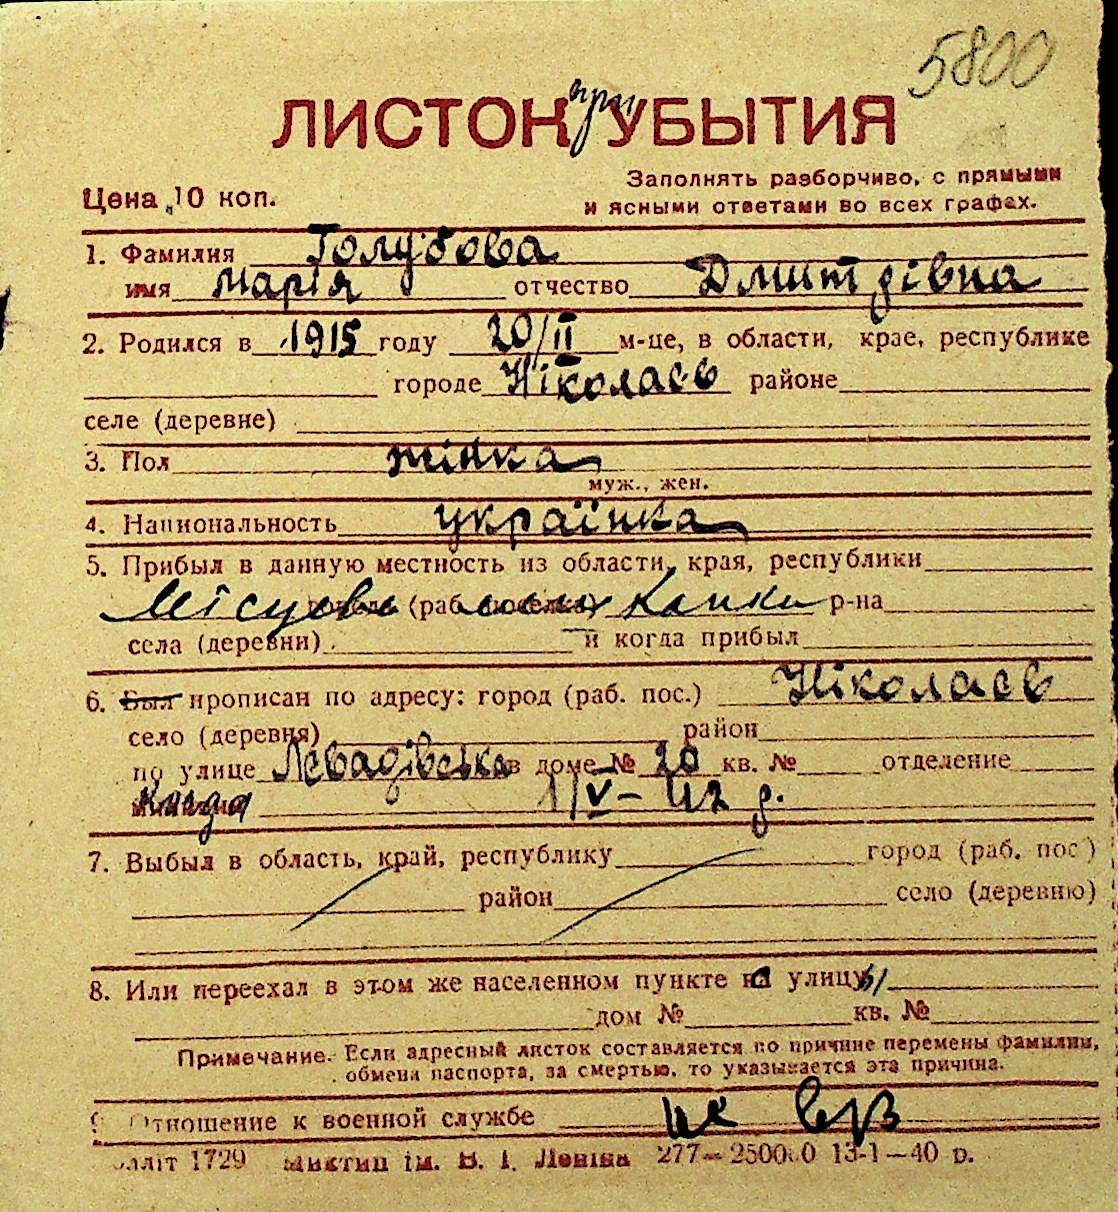 5800
при
ЛИСТОК УБЫТИЯ
Цена 10 коп.
Заполнять разборчиво, с прямыми
и ясными ответами во всех графах.
1. Фамилия Голубова
имя Марія отчество Дмитрівна
2. Родился в 1915 году 20/II м-це, в области, крае, республике
городе Ніколаєв районе
селе (деревне)
3. Пол жінка
муж., жен.
4. Национальность українка
5. Прибыл в данную местность из области, края, республики
Місцева (раб. поселка) р-на
села (деревни) и когда прибыл
6. Был прописан по адресу: город (раб. пос.) Ніколаєв
село (деревня) район
по улице Лєвадівська в доме № 20 кв. № отделение
Когда 1/V-42 р.
7. Выбыл в область, край, республику город (раб. пос.)
район село (деревню)
8. Или переехал в этом же населенном пункте на улицу
дом № кв. №
Примечание. Если адресный листок составляется по причине перемены фамилии,
обмена паспорта, за смертью, то указывается эта причина.
9. Отношение к военной службе
1729 им. В. І. Леніна 277—250000 13-1—40 р.